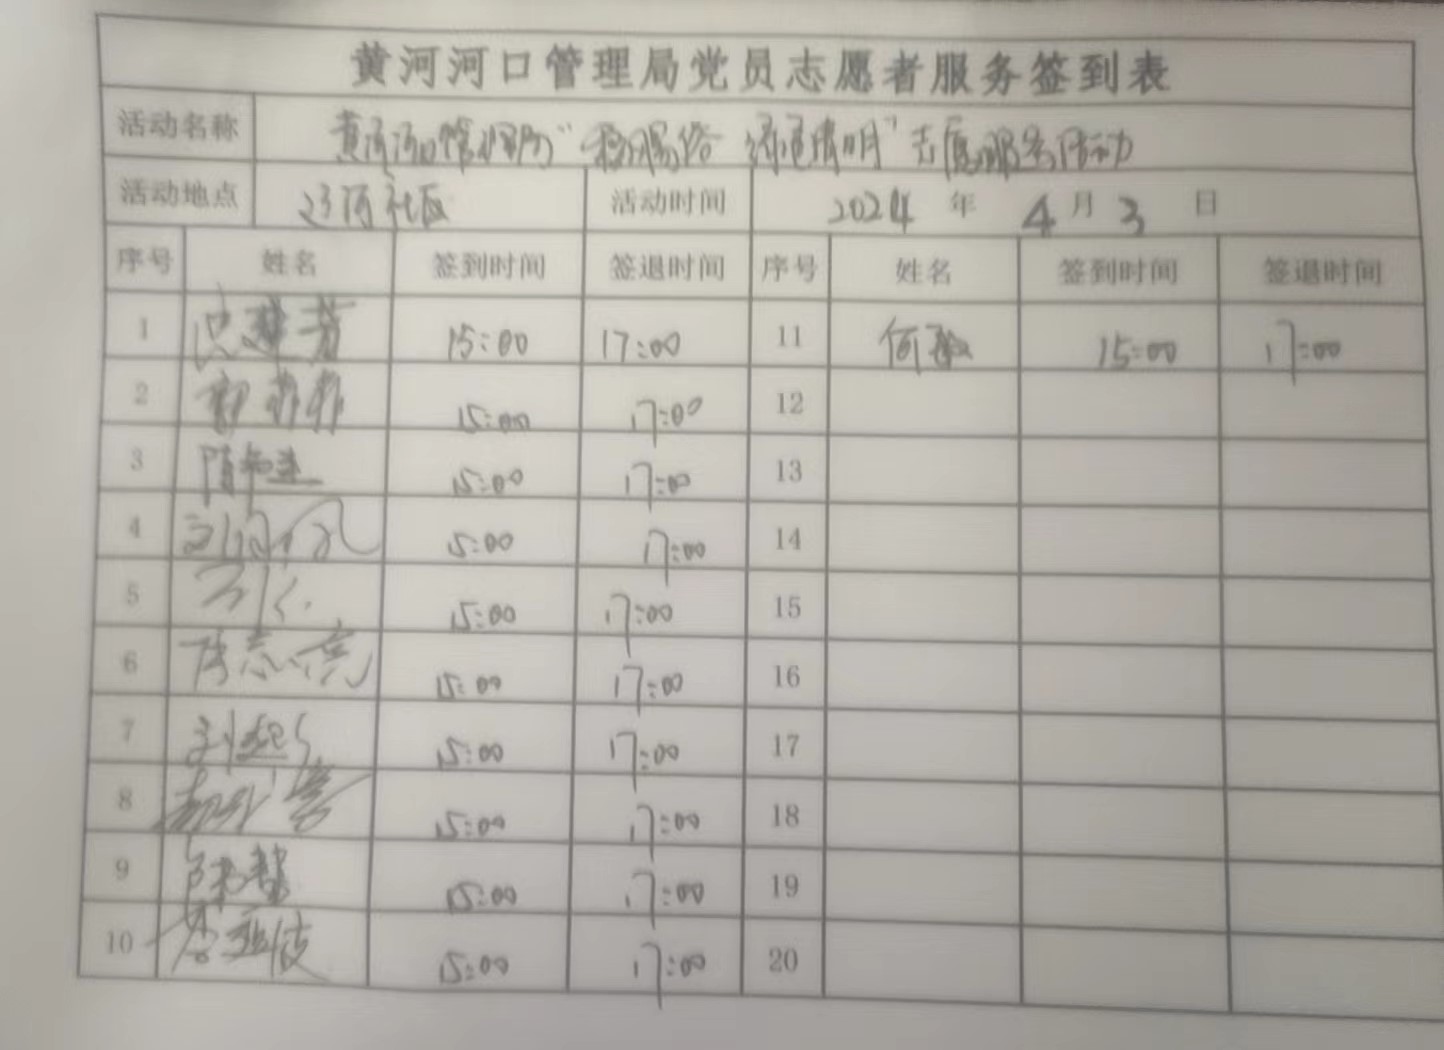 黄河河口管理局党员志愿者服务签到表
活动名称 黄河河口管理局“移风易俗 绿通清明”志愿服务活动
活动地点 社区 活动时间 2024 年 4 月 3 日
序号 姓名 签到时间 签退时间 序号 姓名 签到时间 签退时间
1 15:00 17:00 11 何 15:00 17:00
2 郭菲菲 15:00 17:00 12
3 隋 15:00 17:00 13
4 刘 5:00 17:00 14
5 15:00 17:00 15
6 陈志亮 15:00 17:00 16
7 刘 15:00 17:00 17
8 15:00 17:00 18
9 陈慧 15:00 17:00 19
10 15:00 17:00 20